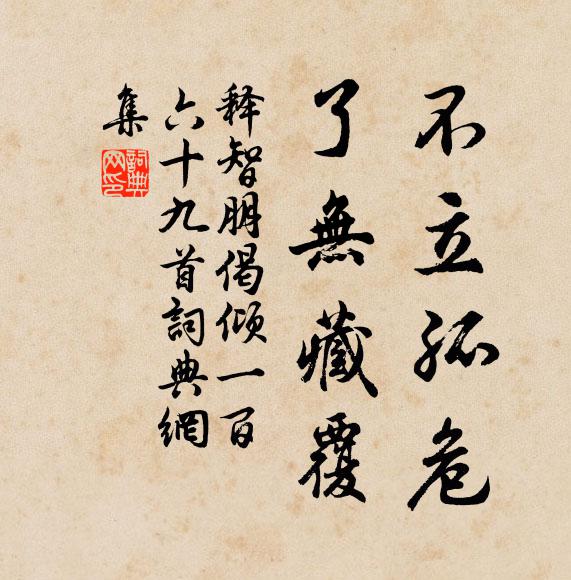 不立孤危
了無藏覆
释智朋偈倾一百
六十九首詞典網
集
詞典
网印